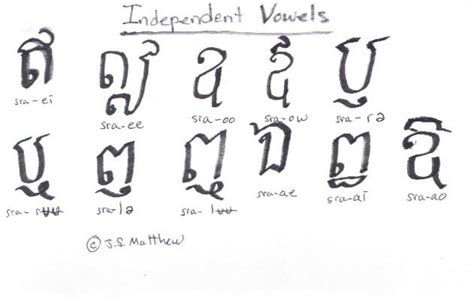 Independent Vowels
ឥ ឦ ឧ ឪ ឫ
sra-ei sra-ee sra-oo sra-ow sra-rə
ឬ ឭ ឮ ឯ ឰ ឱ
sra-rɯɯ sra-lə sra-lɯɯ sra-ae sra-ai sra-ao
© J.S. Matthew